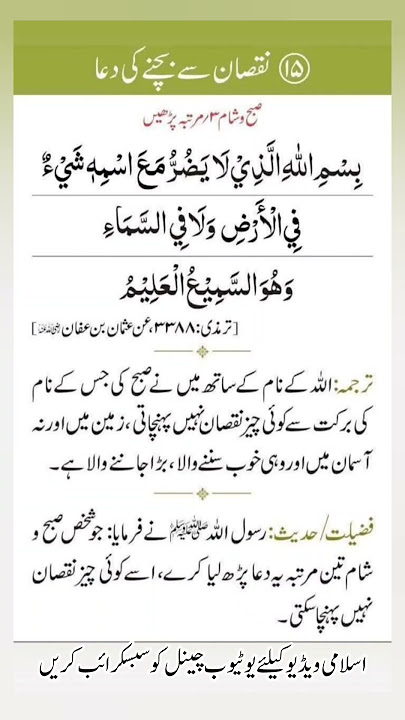 ۱۵ نقصان سے بچنے کی دعا
صبح و شام ۳/ مرتبہ پڑھیں
بِسْمِ اللّٰهِ الَّذِيْ لَا يَضُرُّ مَعَ اسْمِهٖ شَيْءٌ
فِي الْأَرْضِ وَلَا فِي السَّمَاءِ
وَهُوَ السَّمِيْعُ الْعَلِيْمُ
[ترمذی: ۳۳۸۸، عن عثمان بن عفان ؓ]
ترجمہ: اللہ کے نام کے ساتھ میں نے صبح کی جس کے نام
کی برکت سے کوئی چیز نقصان نہیں پہنچاتی، زمین میں اور نہ
آسمان میں اور وہی خوب سننے والا، بڑا جاننے والا ہے۔
فضیلت/حدیث: رسول اللہ ﷺ نے فرمایا: جو شخص صبح و
شام تین مرتبہ یہ دعا پڑھ لیا کرے، اسے کوئی چیز نقصان
نہیں پہنچا سکتی۔
اسلامی ویڈیو کیلئے یوٹیوب چینل کو سبسکرائب کریں